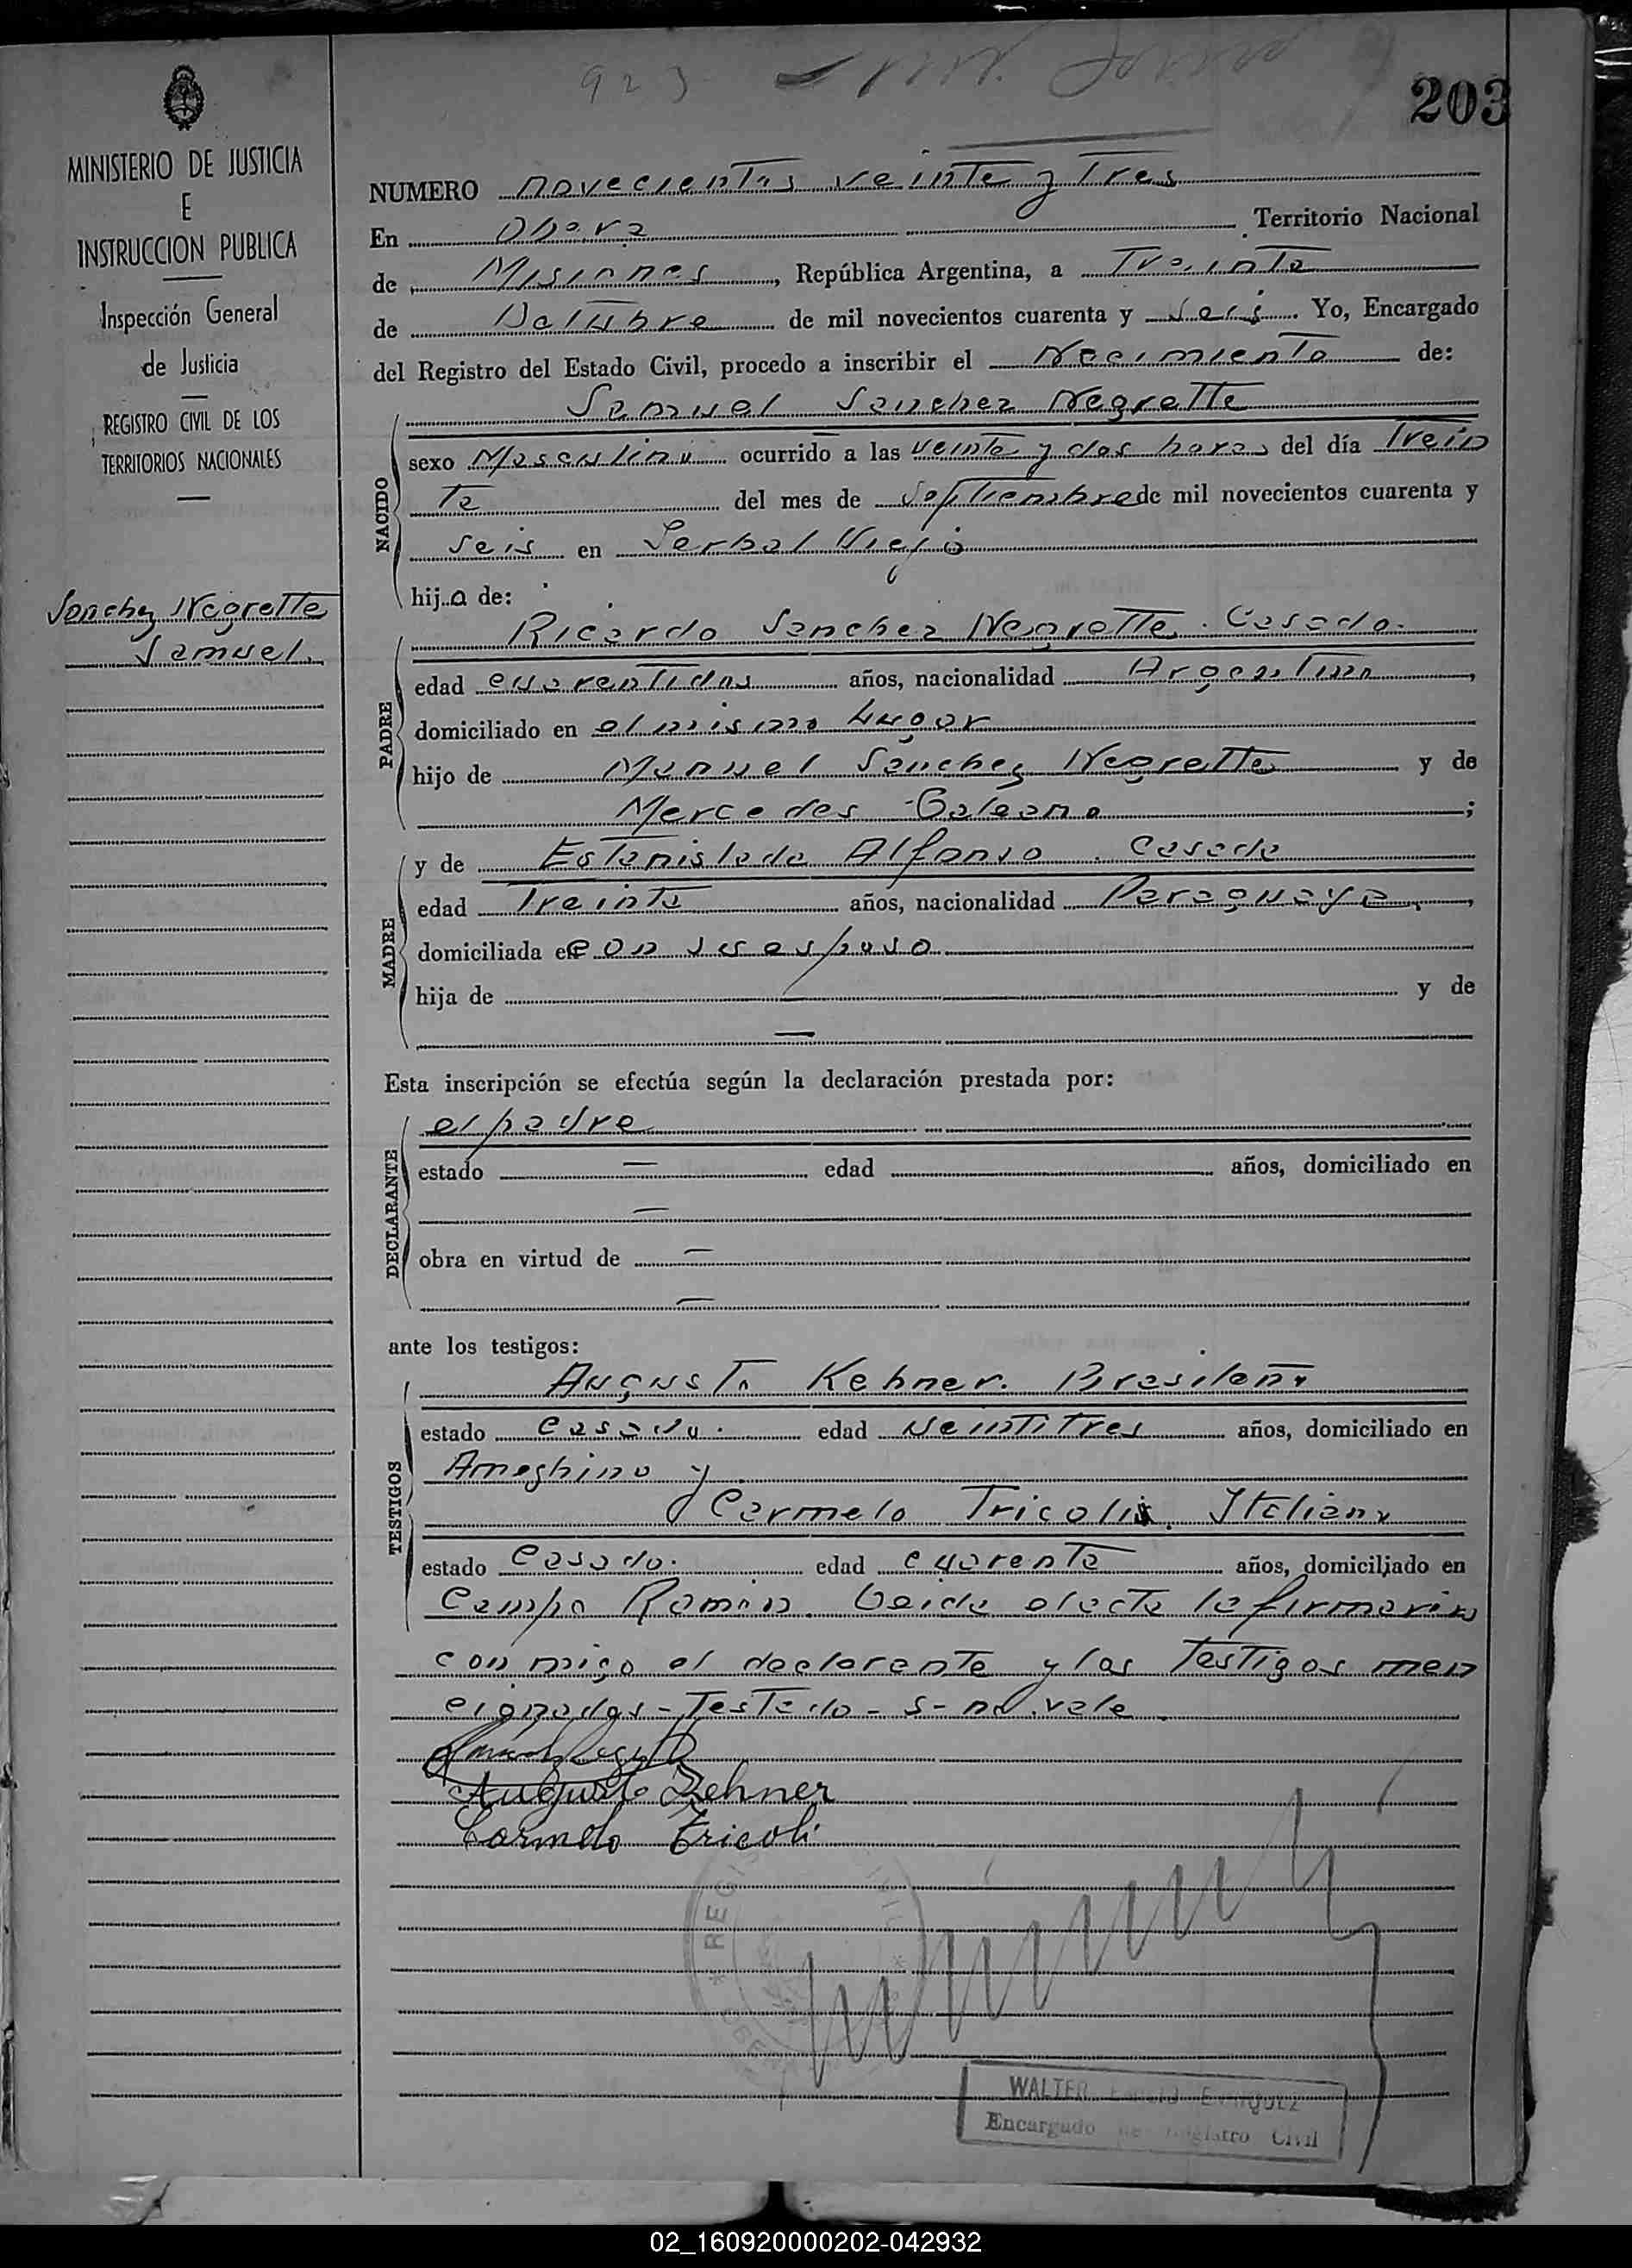 923
203
MINISTERIO DE JUSTICIA
E
INSTRUCCION PUBLICA
Inspección General
de Justicia
REGISTRO CIVIL DE LOS
TERRITORIOS NACIONALES
Sanchez Negrette
Samuel.
NUMERO novecientos veinte y Tres
En Obera Territorio Nacional
de Misiones, República Argentina, a Treinta
de Octubre de mil novecientos cuarenta y seis. Yo, Encargado
del Registro del Estado Civil, procedo a inscribir el Nacimiento de:
Samuel Sanchez Negrette
NACIDO
sexo Masculino ocurrido a las veinte y dos horas del día Trein
ta del mes de Septiembre de mil novecientos cuarenta y
seis en Yerbal Viejo
hij.o de:
PADRE
Ricardo Sanchez Negrette. Casado.
edad cuarentidos años, nacionalidad Argentino,
domiciliado en el mismo Lugar
hijo de Manuel Sanchez Negrette y de
Mercedes Galeano;
MADRE
y de Estanislada Alfonso. Casada
edad Treinta años, nacionalidad Paraguaya,
domiciliada con su esposo
hija de — y de
—
Esta inscripción se efectúa según la declaración prestada por:
DECLARANTE
el padre
estado — edad años, domiciliado en
—
obra en virtud de —
—
ante los testigos:
TESTIGOS
Augusto Kehner. Brasileño
estado Casado. edad Veintitres años, domiciliado en
Ameghino y
Carmelo Tricoli. Italiano
estado Casado. edad cuarenta años, domiciliado en
Campo Ramón. Leida el acta la firmaron
conmigo el declarante y los Testigos men
cionados - Testado - s - no vale.
Augusto Zehner
Carmelo Tricoli
* REGIS
WALTER
Encargado de Registro Civil
02_160920000202-042932